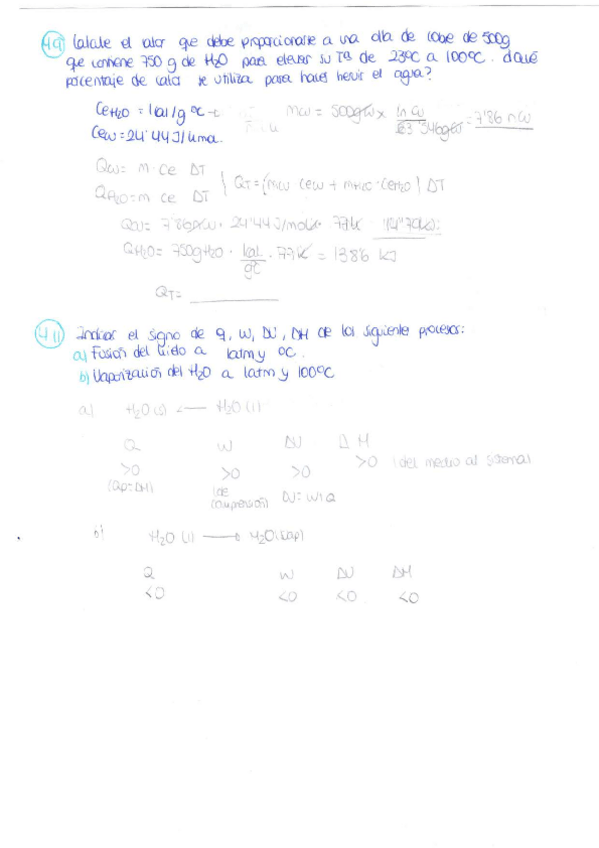 4.9 Calcule el calor que debe proporcionarse a una olla de cobre de 500g
que contiene 750 g de H2O para elevar su Tª de 23ºC a 100ºC. ¿Qué
porcentaje de calor se utiliza para hacer hervir el agua?
CeH2O = 1cal/g ºC
mCu = 500gCu x 1n Cu / 63'546gCu = 7'86 nCu
CeCu = 24'44 J/uma
QCu = m · Ce ΔT
QH2O = m Ce ΔT
QT = (mCu CeCu + mH2O · CeH2O) ΔT
QCu = 7'86nCu · 24'44 J/molK · 77K 14'79kJ
QH2O = 750gH2O · 1cal/gºC · 77K = 1386 kJ
QT = 
4.11 Indicar el signo de Q, W, ΔU, ΔH de los siguiente procesos:
a) Fusión del hielo a 1atm y 0C.
b) Vaporización del H2O a 1atm y 100ºC
a) H2O (s) <— H2O (l)
Q W ΔU ΔH
>0 >0 >0 >0 (del medio al sistema)
(Qp=ΔH) (de compresión) ΔU = W+Q
b) H2O (l) —> H2O (vap)
Q W ΔU ΔH
<0 <0 <0 <0